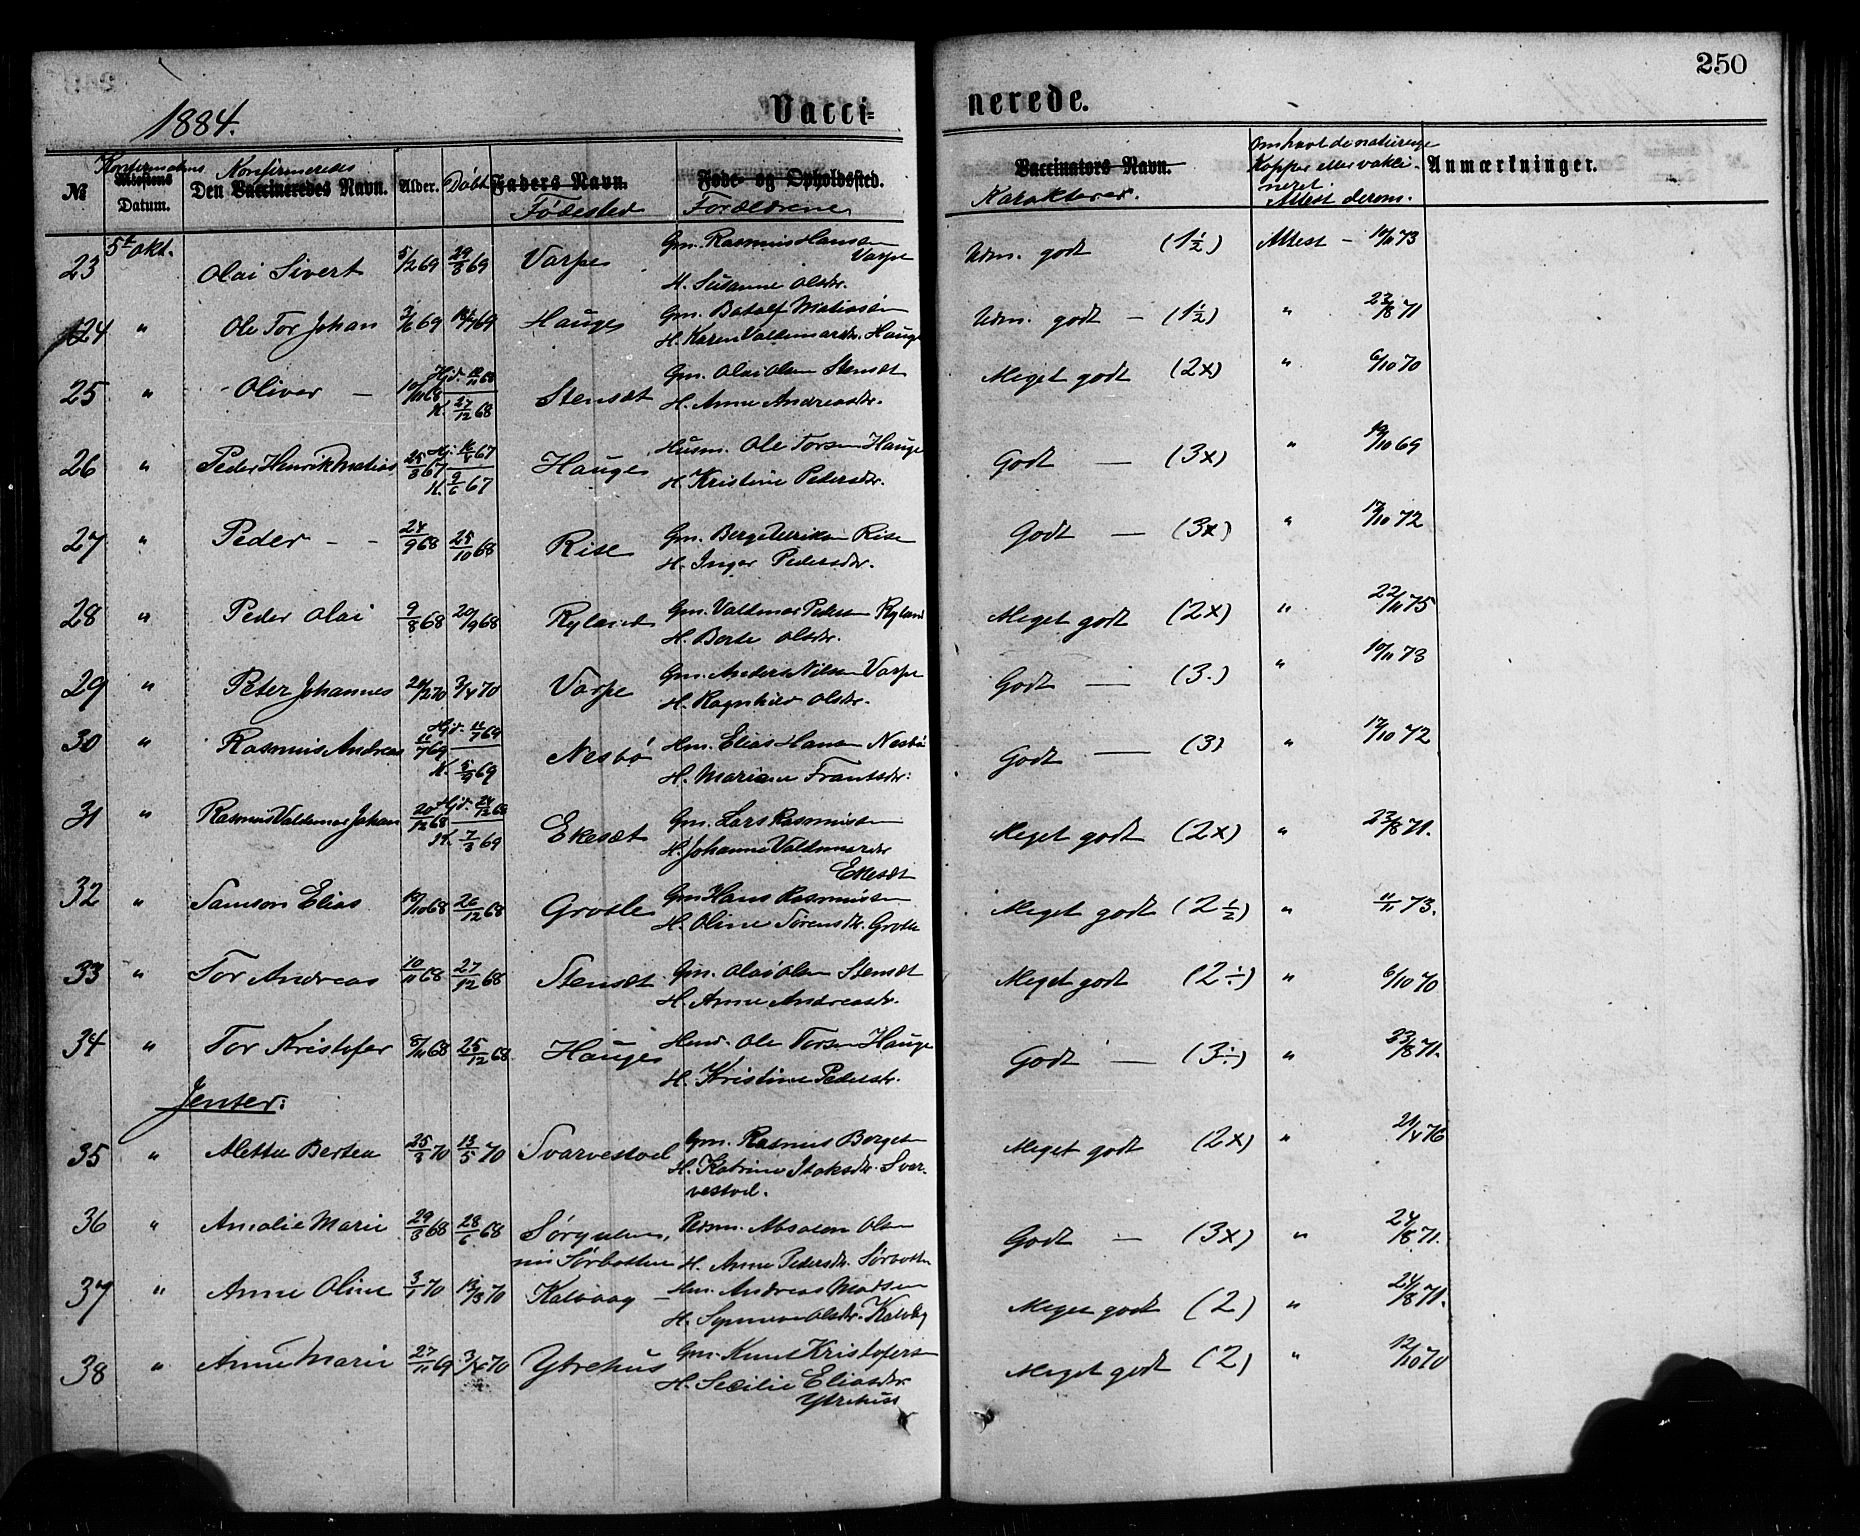 250
1884. Vacci= nerede.
№ Konfirmations Attestens Datum. Konfirmeredes Den Vaccineredes Navn. Alder. Døbt Faders Navn. Fødested Føde- og Opholdssted. Forældrene Vaccinators Navn. Karakterer. Om havt de naturlige Kopper eller vakcineret. Attest derom. Anmærkninger.
23 5te Okt. Olai Sivert 5/2 69 29/3 69 Varpe Gm. Rasmus Hansen Varpe (1½) Attest – 10/11 73
H. Susanne Olsdr. Udm. godt
24 " Ole Tor Johan 3/6 69 69 Hauge Gm. Batolf Matiasen Udm. godt – (1½) " 23/8 71
H. Karen Valdemarsdr. Hauge
25 " Oliver – 10/11 68 Hjd. 68 Stensæt Gm. Olai Olsen Stensæt Meget godt (2x) " 6/10 70
K. 27/12 68 H. Anne Andreasdr.
26 " Peder Henrik Matias 25/3 67 Hj. 67 Hauge Husm. Ole Torsen Hauge Godt – (3x) " 19/10 69
K. 9/6 67 H. Kristine Pedersdr.
27 " Peder – – 24/9 68 25/10 68 Rise Gm. Berge Rise Godt – (3x) " 17/10 72
H. Inger Pedersdr.
28 " Peder Olai 9/8 68 20/9 68 Ryland Gm. Valdemar Peders. Ryland Meget godt (2x) " 22/11 75
H. Berte Olsdr.
29 " Peter Johannes 24/2 70 3/4 70 Varpe Gm. Anders Nilsen Varpe Godt – (3.) " 10/11 73
H. Ragnhild Olsdr.
30 " Rasmus Andreas 11/7 69 Hjd. 11/7 69 Nesbø Hm. Elias Hansen Nesbø Godt – (3) " 17/10 72
K. 5/9 69 H. Mariane Frantsdr.
31 " Rasmus Valdemar Johan 20/12 68 Hjd. 24/12 68 Ekesæt Gm. Lars Rasmussen Meget godt (2x) " 23/8 71.
K. 7/3 69 H. Johanne Valdemarsdr. Ekesæt
32 " Samson Elias 68 26/12 68 Grotle Gm. Hans Rasmussen Meget godt (2½) " 11/11 73.
H. Oline Sørensdr. Grotle
33 " Tor Andreas 10/11 68 27/12 68 Stensæt Gm. Olai Olsen Stensæt Meget godt (2÷) " 6/10 70
H. Anne Andreasdr.
34 " Tor Kristofer 8/11 68 25/12 68 Hauge Hmd. Ole Torsen Hauge Godt – (3÷) " 23/8 71.
H. Kristine Pedersdr.
Jenter:
35 " Alette Bertea 25/3 70 13/5 70 Svarvestvel Gm. Rasmus Børgesen Meget godt (2x) " 21/4 76
H. Katrine Isaksdr. Svar-
vestvel.
36 " Amalie Marie 29/3 68 28/6 68 Sørgulen, Pdsm. Absalon Olsen Godt – (3x) " 24/8 71.
nu Sørbotten H. Anne Pedersdr. Sørbotten
37 " Anne Oline 3/1 70 13/3 70 Kalvaag – Hm. Andreas Madsen Meget godt (2) " 24/8 71.
H. Synneve Olsdr. Kalvåg
38 " Anne Marie 27/11 69 3/4 70 Ytrehus Gm. Knut Kristofersen Meget godt (2) " 12/10 70
H. Secilie Eliasdr.
Ytrehus